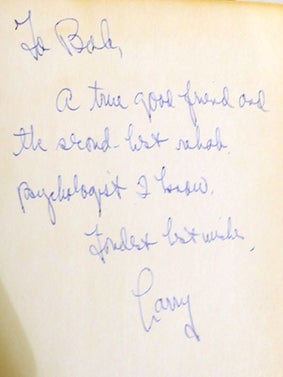 To Bob,
A true good friend and
the second-best rehab.
psychologist I know.
Fondest best wishes,
Larry